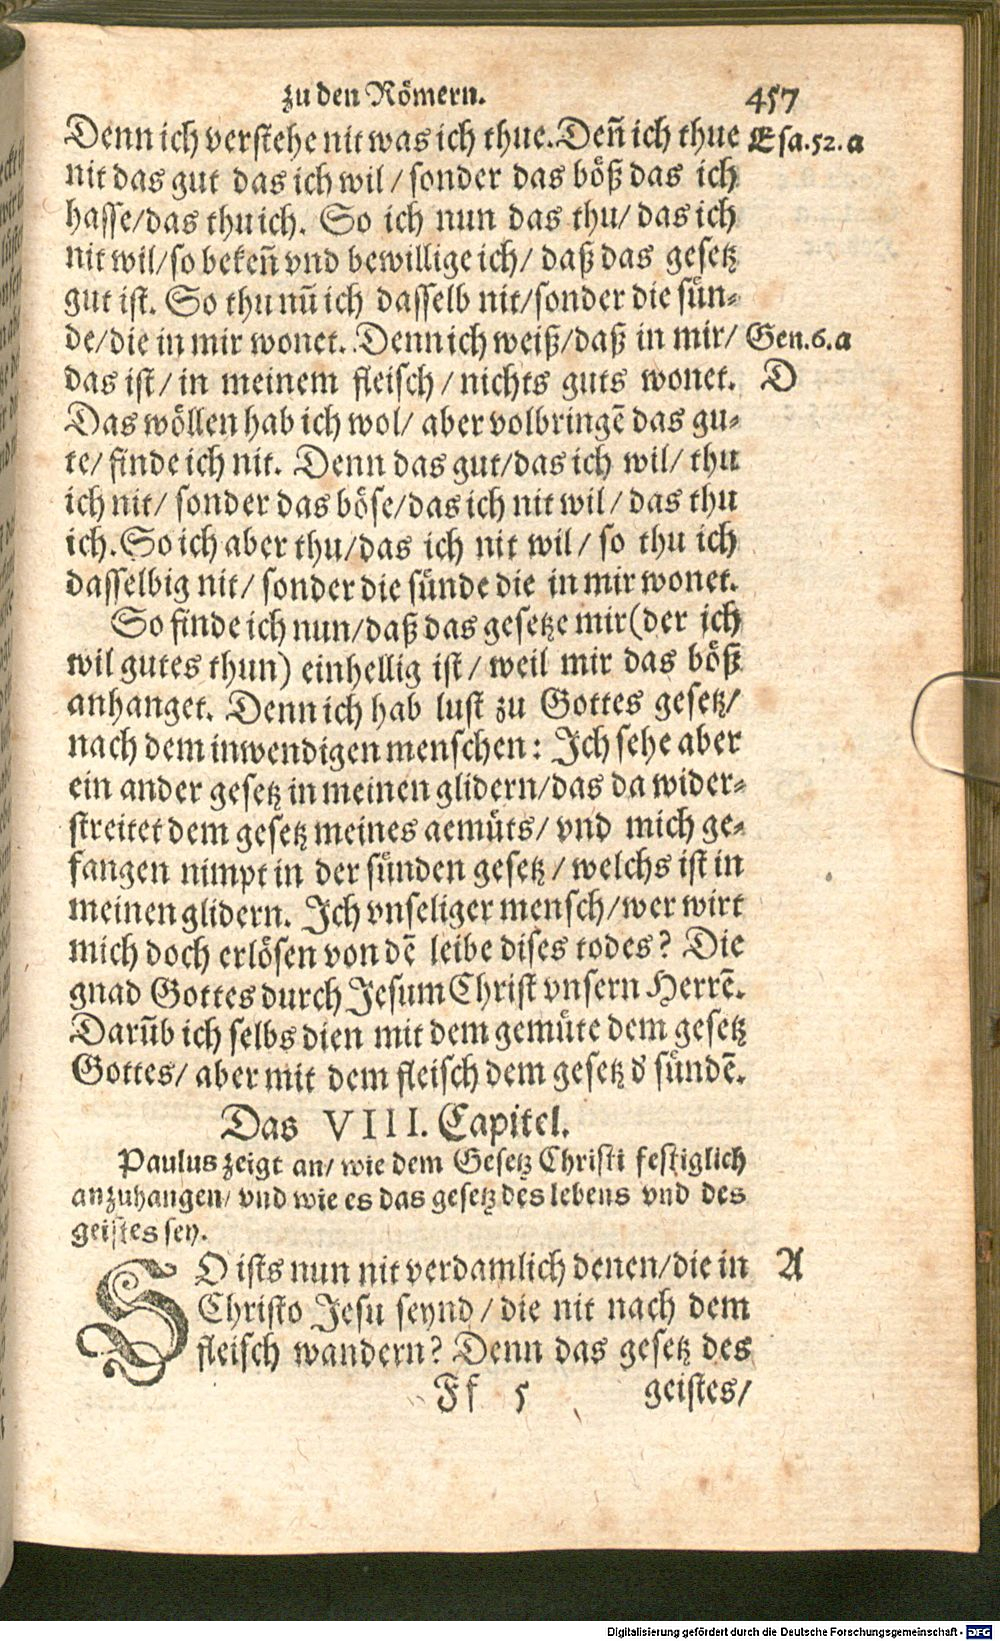 zu den Römern. 457
Denn ich verstehe nit was ich thue. Deñ ich thue Esa.52.a
nit das gut das ich wil / sonder das böß das ich
hasse/das thu ich. So ich nun das thu/ das ich
nit wil/so bekeñ vnd bewillige ich/ daß das gesetz
gut ist. So thu nũ ich dasselb nit/sonder die sün⸗
de/die in mir wonet. Denn ich weiß/daß in mir/ Gen.6.a
das ist/ in meinem fleisch / nichts guts wonet. D
Das wöllen hab ich wol/ aber volbringẽ das gu⸗
te/ finde ich nit. Denn das gut/das ich wil/ thu
ich nit/ sonder das böse/das ich nit wil/ das thu
ich. So ich aber thu/das ich nit wil/ so thu ich
dasselbig nit/ sonder die sünde die in mir wonet.
So finde ich nun/daß das gesetze mir(der ich
wil gutes thun) einhellig ist / weil mir das böß
anhanget. Denn ich hab lust zu Gottes gesetz/
nach dem inwendigen menschen: Ich sehe aber
ein ander gesetz in meinen glidern/das da wider⸗
streitet dem gesetz meines gemüts/ vnd mich ge⸗
fangen nimpt in der sünden gesetz / welchs ist in
meinen glidern. Ich vnseliger mensch/wer wirt
mich doch erlösen von dẽ leibe dises todes? Die
gnad Gottes durch Jesum Christ vnsern Herrẽ.
Darũb ich selbs dien mit dem gemüte dem gesetz
Gottes/ aber mit dem fleisch dem gesetz d' sündẽ.
Das VIII. Capitel.
Paulus zeigt an/ wie dem Gesetz Christi festiglich
anzuhangen/ vnd wie es das gesetz des lebens vnd des
geistes sey.
SO ists nun nit verdamlich denen/die in A
Christo Jesu seynd / die nit nach dem
fleisch wandern? Denn das gesetz des
Ff 5 geistes/
Digitalisierung gefördert durch die Deutsche Forschungsgemeinschaft - DFG